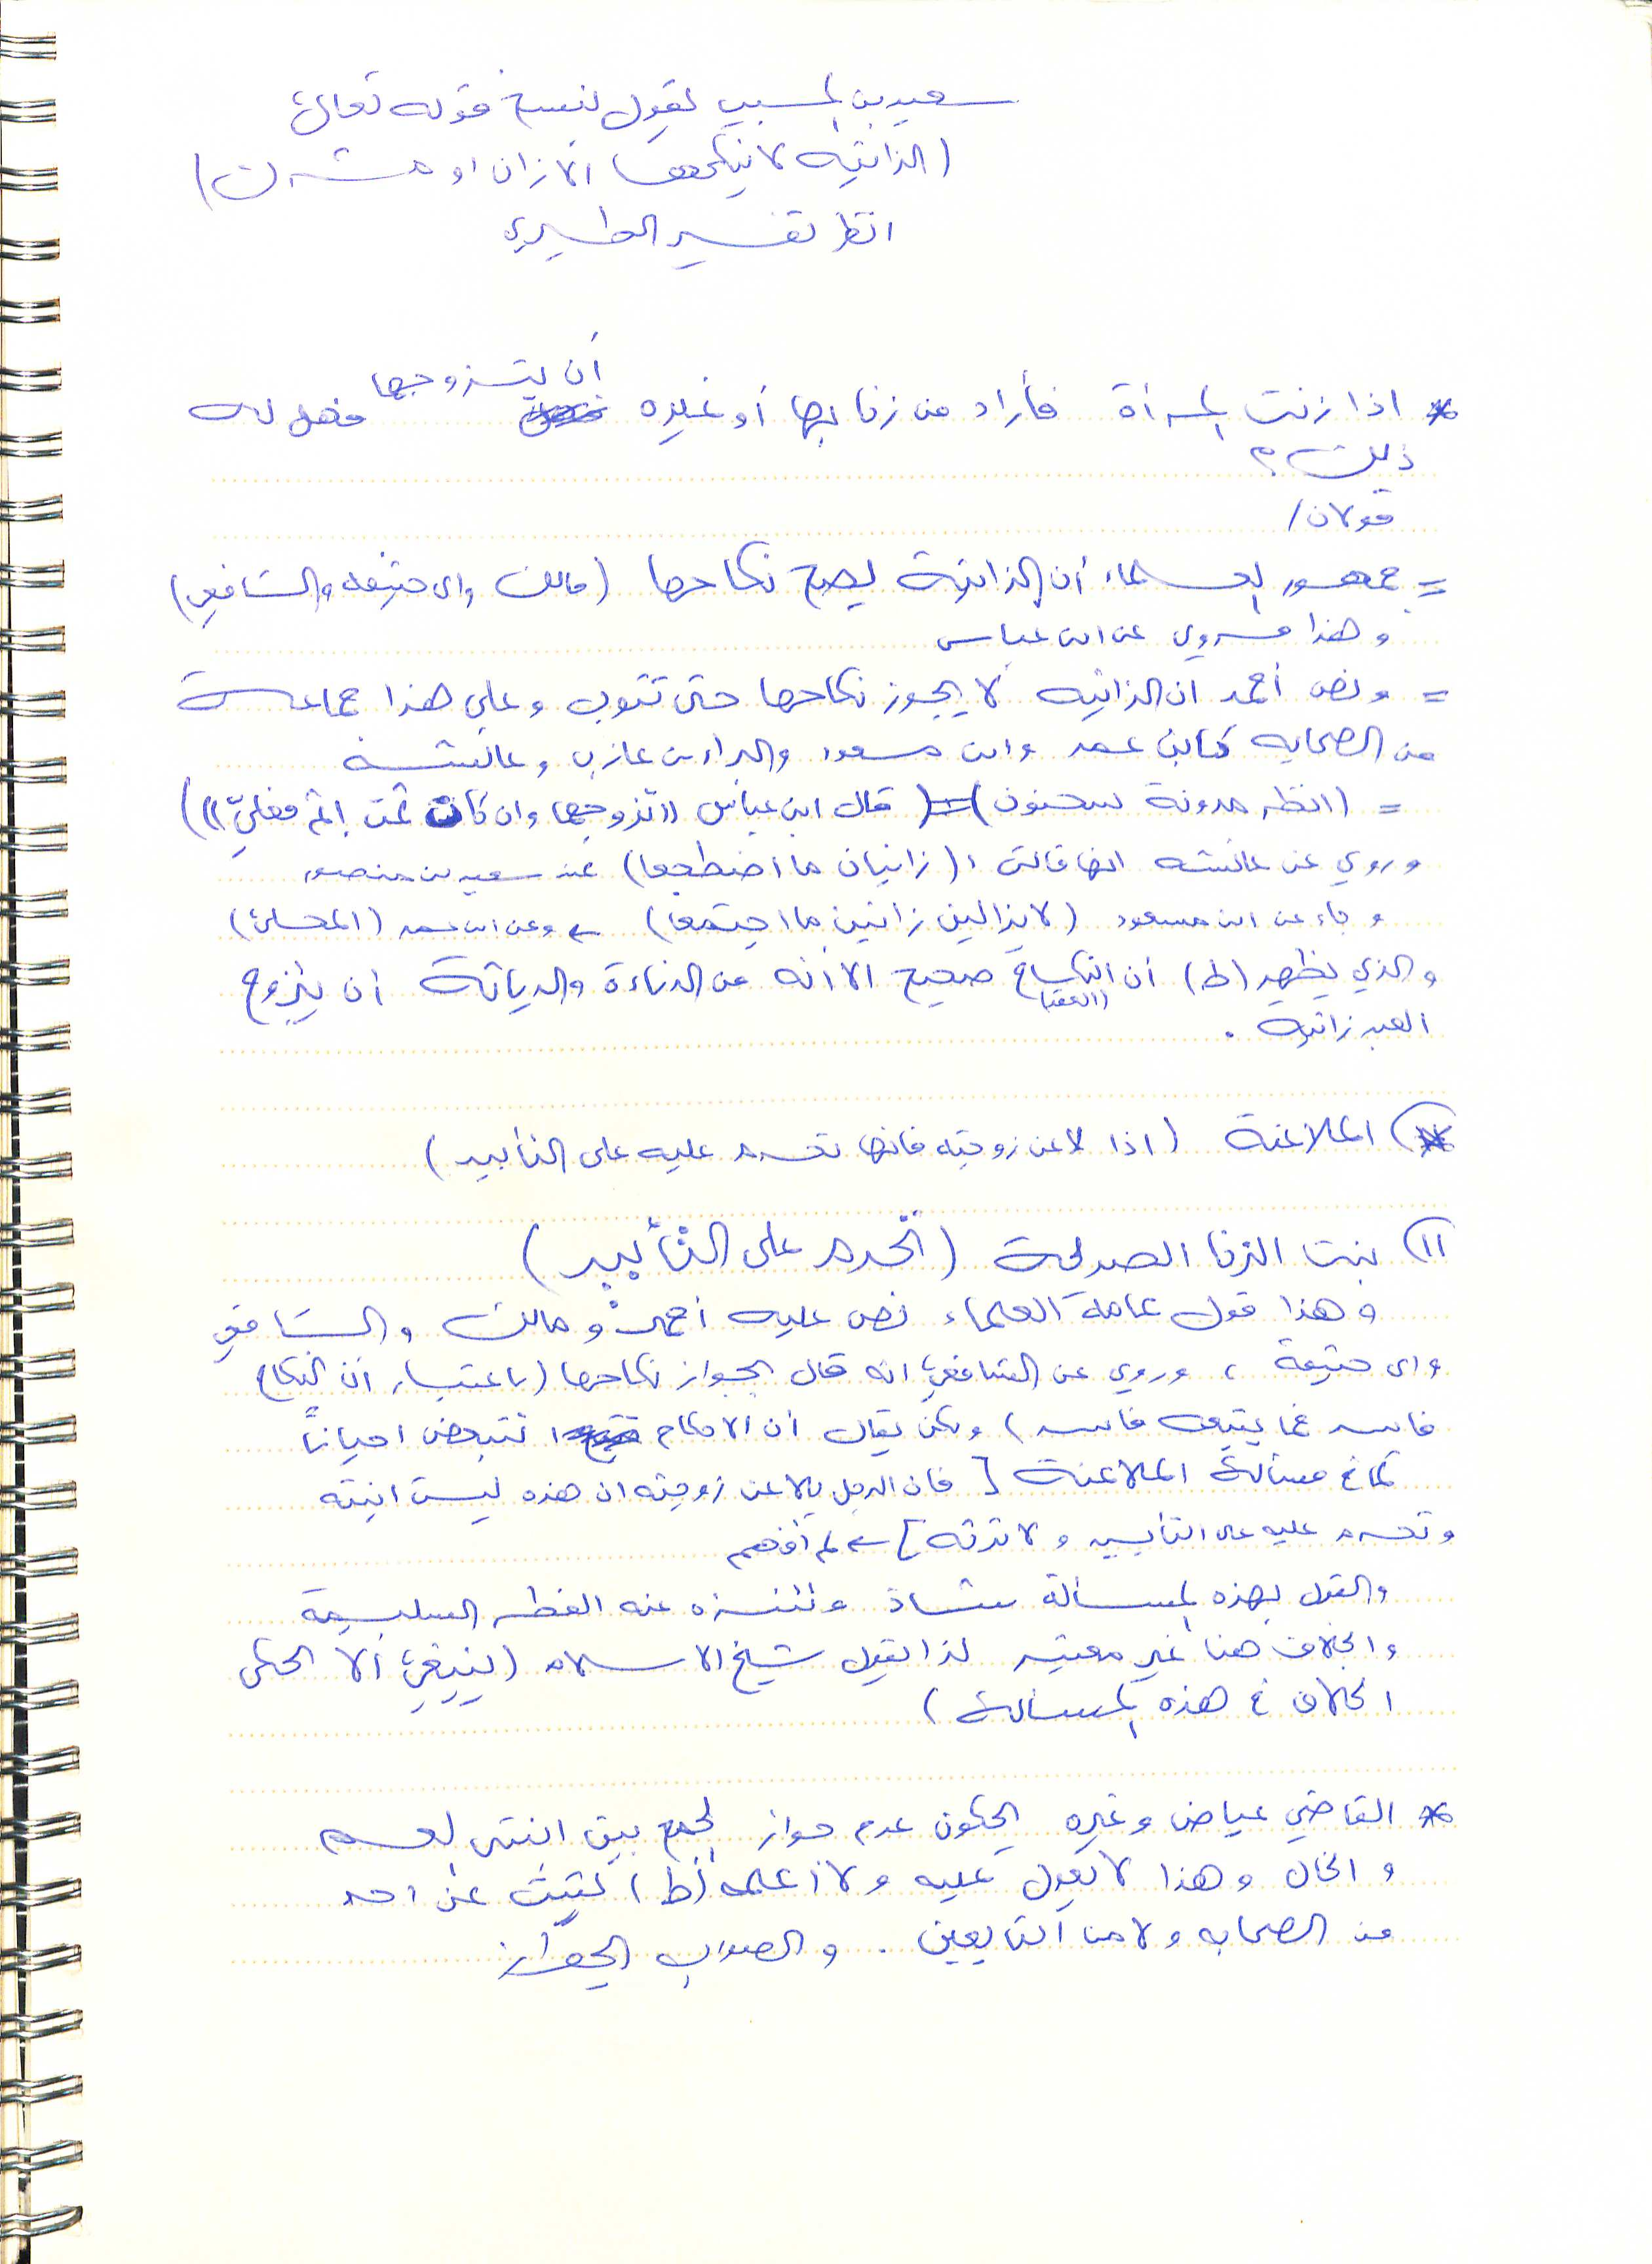 سعيد بن المسيب يقول بنسخ قوله تعالى
(الزانية لا ينكحها الا زان او مشرك)
انظر تفسير الطبري
* اذا زنت المرأة فأراد من زنا بها أو غيره أن يتزوجها فهل له
ذلك ؟
قولان /
= جمهور العلماء أن الزانية يصح نكاحها (مالك وابي حنيفه والشافعي)
وهذا مروي عن ابن عباس
= ونص أحمد ان الزانيه لا يجوز نكاحها حتى تتوب وعلى هذا جماعة
من الصحابه كابن عمر وابن مسعود والبراء بن عازب وعائشه
= (انظر مدونة سحنون) (قال ابن عباس ((تزوجها وان كان ثمت إثم فعليّ)))
وروي عن عائشه انها قالت : (زانيان ما اضطجعا) عند سعيد بن منصور
وجاء عن ابن مسعود (لا يزالين زانيين ما اجتمعا) ← وعن ابن عمر (المحلى)
والذي يظهر (ط) أن النكاح (العقد) صحيح الا أنه من الدناءة والدياثة أن يتزوج
العبد زانيه .
* الملاعنة (اذا لاعن زوجته فانها تحرم عليه على التأبيد)
١١) بنت الزنا الصريحة (تحرم على التأبيد)
وهذا قول عامة العلماء نص عليه أحمد ومالك والشافعي
وابي حنيفة ، وروي عن الشافعي انه قال بجواز نكاحها (باعتبار أن النكاح
فاسد فما يتبعه فاسد) ولكن يقال أن الاحكام تتبعض احياناً
كما في مسألة الملاعنة [فان الرجل يلاعن زوجته ان هذه ليست ابنته
وتحرم عليه على التأبيد ولا ترثه] ← لم أفهم
والقول بهذه المسألة شاذ وتتنزه عنه الفطر السليمة
والخلاف هنا غير معتبر لذا يقول شيخ الاسلام (ينبغي ألا يحكى
الخلاف في هذه المسألة)
* القاضي عياض وغيره يحكون عدم جواز الجمع بين ابنتي العم
والخال وهذا لا يعول عليه ولا أعلمه (ط) يثبت عن احد
من الصحابه ولا من التابعين . والصواب الجواز